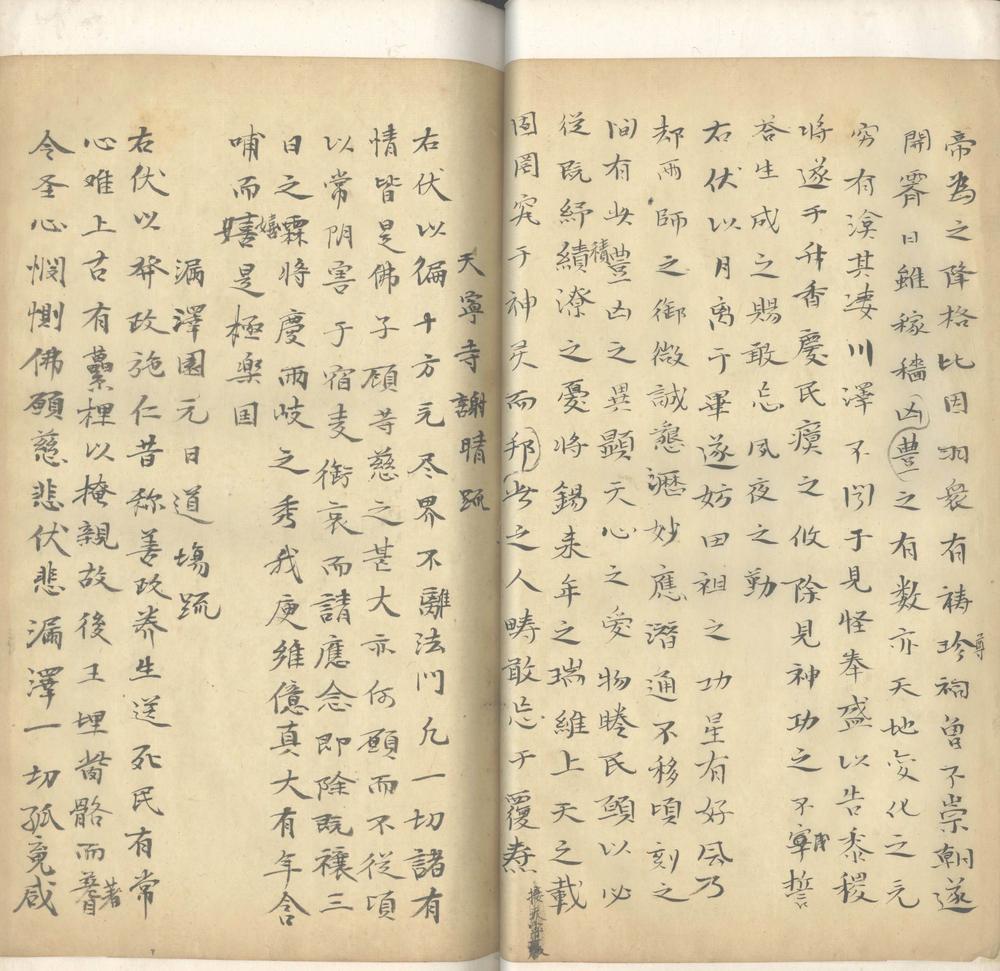 帝為之降格比因羽衆有祷珍祠曽不崇朝遂
尊
開霽日雖稼穡凶豊之有数亦天地変化之元
穷有渰其凄川澤不闭于見怪奉盛以告黍稷
将遂于升香慶民瘼之攸除見神功之不宰誓
答生成之賜敢忘夙夜之勤
右伏以月离于畢遂妨田祖之功星有好风乃
却雨師之御微誠懇瀝妙應潛通不移頃刻之
间有此豊凶之異顯天心之爱物睠民頥以必
積
從既紓績潦之憂将錫来年之瑞維上天之載
固罔究于神灵而邦此之人畴敢忘于覆焘
天寧寺謝晴疏
右伏以徧十方无尽界不離法门凡一切諸有
情皆是佛子顾等慈之甚大亦何願而不從頃
以常阴害于宿麦衔哀而請應念即除既禳三
日之霖将慶两岐之秀我庾维億真大有年含
哺而嬉是極楽国
嬉
漏澤園元日道塲疏
右伏以發政施仁昔称善政养生送死民有常
心难上古有虆梩以掩親故後王埋胔骼而著
著
令圣心悯恻佛願慈悲伏悲漏澤一切孤竟咸